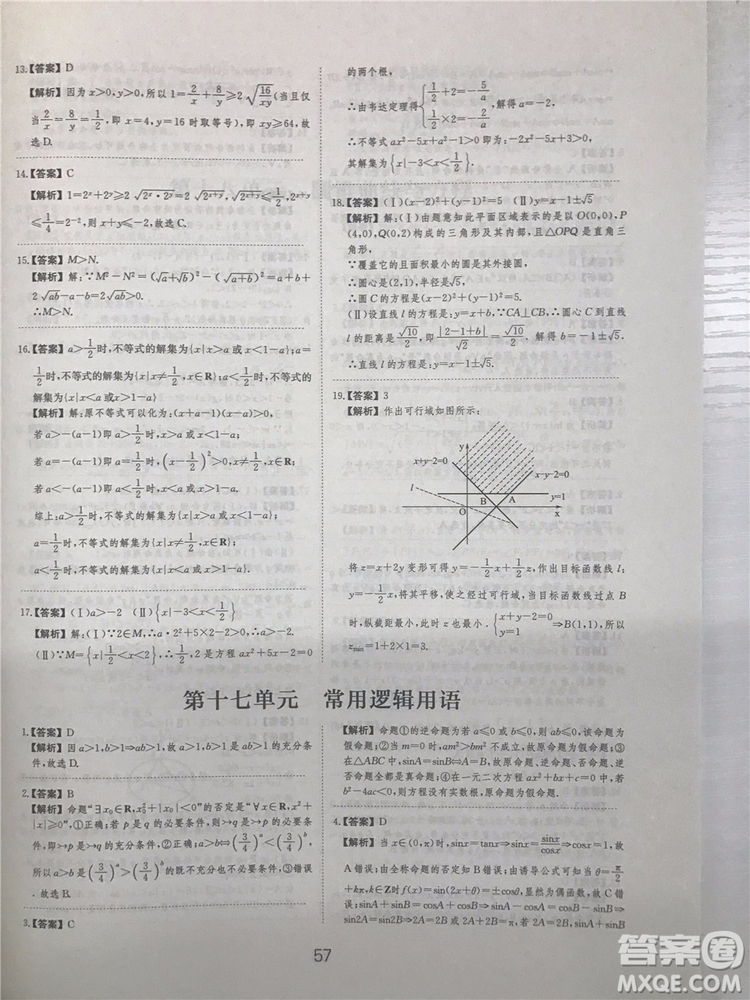 13.【答案】D
【解析】因为 x>0,y>0,所以 1=2/x+8/y≥2√(16/xy)(当且仅
当 2/x=8/y=1/2,即 x=4,y=16 时取等号),即 xy≥64,故
选 D.
14.【答案】C
【解析】1=2ˣ+2ʸ≥2√(2ˣ·2ʸ)=2√(2ˣ⁺ʸ),√(2ˣ⁺ʸ)≤1/2,2ˣ⁺ʸ
≤1/4=2⁻²,则 x+y≤-2,故选 C.
15.【答案】M>N.
【解析】解:∵M²-N²=(√a+√b)²-(√(a+b))²=a+b+
2√(ab)-a-b=2√(ab)>0.
∴M>N.
16.【答案】a>1/2时,不等式的解集为{x|x>a 或 x<1-a};a=
1/2时,不等式的解集为{x|x≠1/2,x∈R};a<1/2时,不等式的
解集为{x|x<a 或 x>1-a}
【解析】解:原不等式可以化为:(x+a-1)(x-a)>0,
若 a>-(a-1)即 a>1/2时,x>a 或 x<1-a;
若 a=-(a-1)即 a=1/2时,(x-1/2)²>0,x≠1/2,x∈R;
若 a<-(a-1)即 a<1/2时,x<a 或 x>1-a.
综上:a>1/2时,不等式的解集为{x|x>a 或 x<1-a};
a=1/2时,不等式的解集为{x|x≠1/2,x∈R};
a<1/2时,不等式的解集为{x|x<a 或 x>1-a}.
17.【答案】(Ⅰ)a>-2 (Ⅱ){x|-3<x<1/2}
【解析】解:(Ⅰ)∵2∈M,∴a·2²+5×2-2>0,∴a>-2.
(Ⅱ)∵M={x|1/2<x<2},∴1/2,2 是方程 ax²+5x-2=0
的两个根,
∴由韦达定理得{1/2+2=-5/a,1/2×2=-2/a,解得 a=-2,
∴不等式 ax²-5x+a²-1>0 即为:-2x²-5x+3>0,
其解集为{x|-3<x<1/2}.
18.【答案】(Ⅰ)(x-2)²+(y-1)²=5 (Ⅱ)y=x-1±√5
【解析】解:(Ⅰ)由题意知此平面区域表示的是以 O(0,0),P
(4,0),Q(0,2)构成的三角形及其内部,且△OPQ 是直角三
角形,
∴覆盖它的且面积最小的圆是其外接圆.
∴圆心是(2,1),半径是√5,
∴圆 C 的方程是(x-2)²+(y-1)²=5.
(Ⅱ)设直线 l 的方程是:y=x+b.∵CA⊥CB,∴圆心 C 到直线
l 的距离是√10/2,即|2-1+b|/√2=√10/2,解得 b=-1±√5.
∴直线 l 的方程是:y=x-1±√5.
19.【答案】3
【解析】作出可行域如图所示:
y
x+y-2=0
x-y-2=0
l
B
A
y=1
O
x
将 z=x+2y 变形可得 y=-1/2x+1/2z,作出目标函数线 l:
y=-1/2x,将其平移,使之经过可行域,当目标函数线过点 B
时,纵截距最小,此时 z 也最小.由{x+y-2=0,y=1⇒B(1,1),所以
zmin=1+2×1=3.
第十七单元 常用逻辑用语
1.【答案】D
【解析】因 a>1,b>1⇒ab>1,故 a>1,b>1 是 ab>1 的充分条
件,故选 D.
2.【答案】B
【解析】命题“∃x₀∈R,x₀²+|x₀|<0”的否定是“∀x∈R,x²+
|x|≥0”,①正确;若 p 是 q 的必要条件,则¬p 是¬q 的充分
条件,即¬p 是¬q 的不必要条件,②正确;a>b⇔(3/4)ᵃ<(3/4)ᵇ,
所以 a>b 是(3/4)ᵃ>(3/4)ᵇ的既不充分也不必要条件,③错误
.故选 B.
3.【答案】C
【解析】命题①的逆命题为若 a≤0 或 b≤0,则 a+b≤0,为
假命题;②当 m=0 时,am²>bm² 不成立,故原命题为假命题;③
在△ABC 中,sinA=sinB⇔A=B,故原命题、逆命题、否命题、
逆否命题全为真命题;④在一元二次方程 ax²+bx+c=0 中,若
b²-4ac<0,则方程没有实数根,原命题为假命题.故选 C.
4.【答案】D
【解析】当 x∈(0,π)时,sinx=tanx⇒sinx=sinx/cosx⇒cosx=1,故
A 错误;由全称命题的否定知 B 错误;由诱导公式可知当 θ=π/2
+kπ,k∈Z时f(x)=sin(2x+θ)=±cos2x,显然为偶函数,故 C
错误;sinA=cosB,sinB=cosA⇒sinA+cosA=sinB+cosB⇒
sin2A=sin2B⇒2A=2B 或 2A+2B=π,若 2A=2B,则
57
答案圈
MXQE.COM